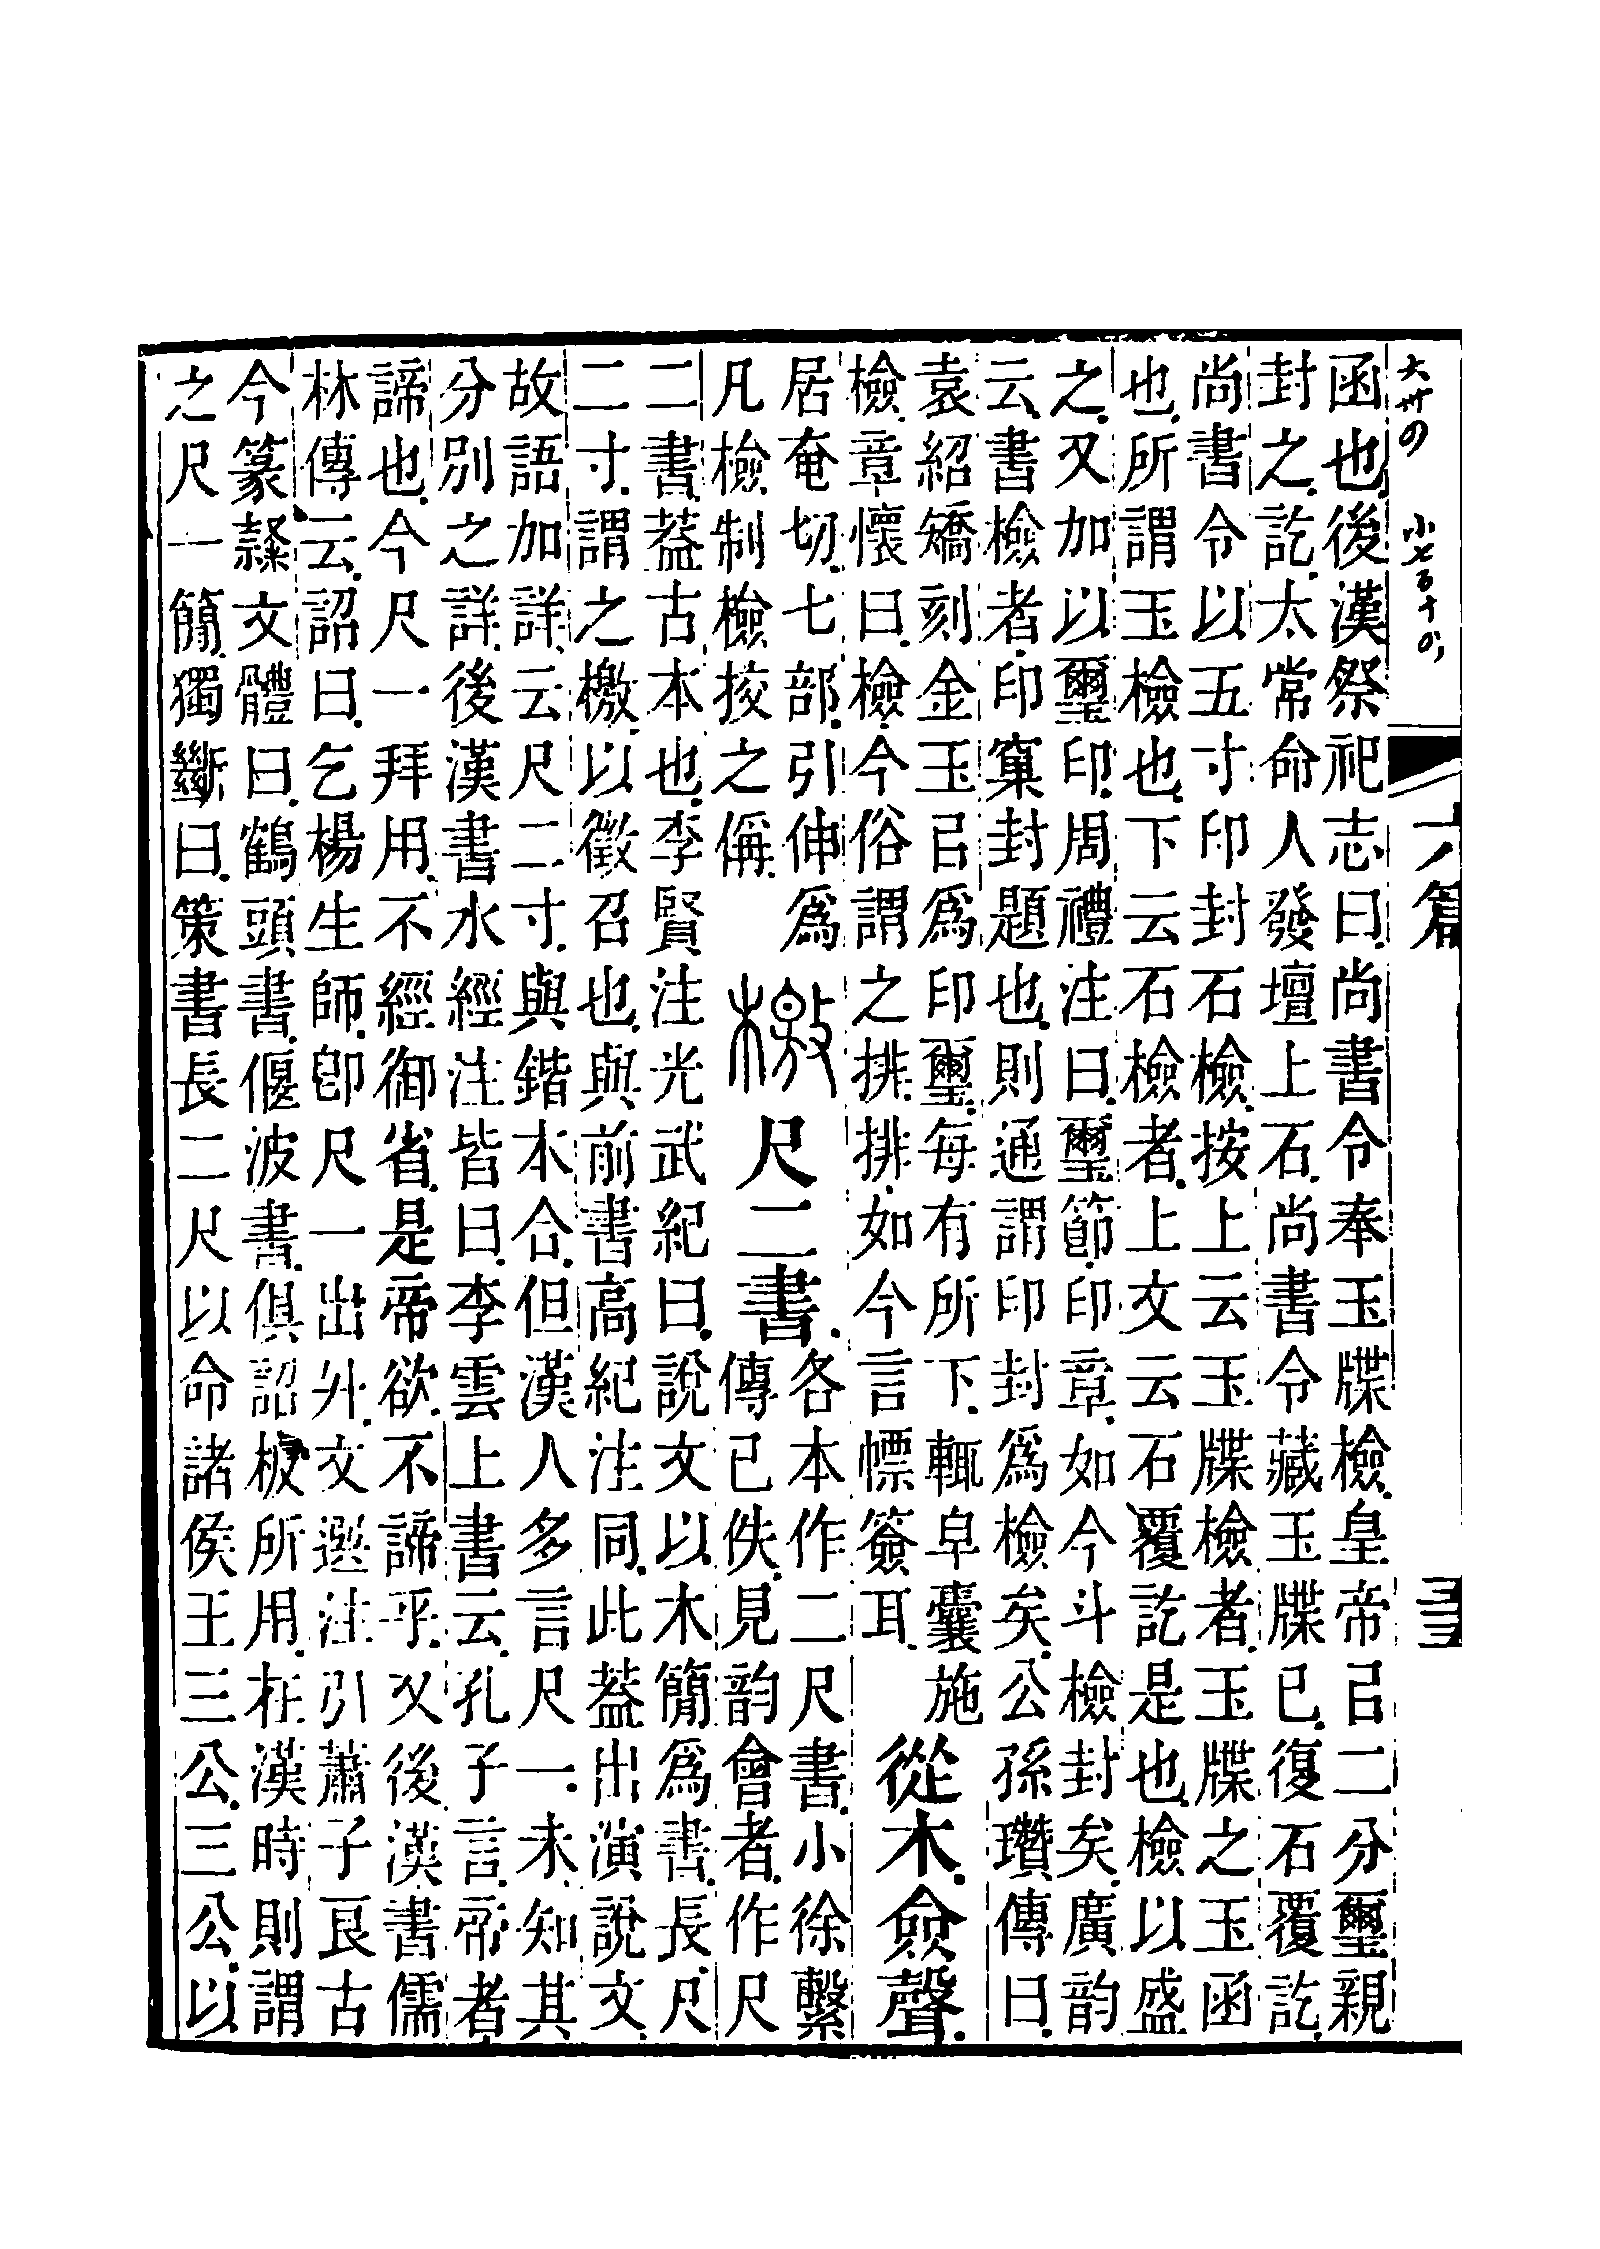 函也。後漢祭祀志曰。尚書令奉玉牒檢。皇帝㠯二分璽親
封之。訖。太常命人發壇上石。尚書令藏玉牒已。復石覆訖。
尚書令以五寸印封石檢。按上云玉牒檢者。玉牒之玉函
也。所謂玉檢也。下云石檢者。上文云石覆訖是也。檢以盛
之。又加以璽印。周禮注曰。璽節。印章。如今斗檢封矣。廣韵
云。書檢者。印窠封題也。則通謂印封爲檢矣。公孫瓚傳曰。
袁紹矯刻金玉㠯爲印璽。每有所下。輒皁囊施
檢。章懷曰。檢。今俗謂之排。排。如今言幖簽耳。
從木。僉聲。
居奄切。七部。引伸爲
凡檢制檢挍之偁。
檄
尺二書。
各本作二尺書。小徐繫
傳已佚。見韵會者。作尺
二書。葢古本也。李賢注光武紀曰。說文以木簡爲書。長尺
二寸。謂之檄。以徵召也。與前書高紀注同。此葢出演說文。
故語加詳。云尺二寸。與鍇本合。但漢人多言尺一。未知其
分別之詳。後漢書水經注皆曰。李雲上書云。孔子言帝者
諦也。今尺一拜用。不經御省。是帝欲不諦乎。又後漢書儒
林傳云。詔曰。乞楊生師。卽尺一出升。文選注引蕭子良古
今篆隸文體曰。鶴頭書。偃波書。俱詔板所用。在漢時則謂
之尺一簡。獨斷曰。策書長二尺。以命諸侯王三公。三公以
六篇